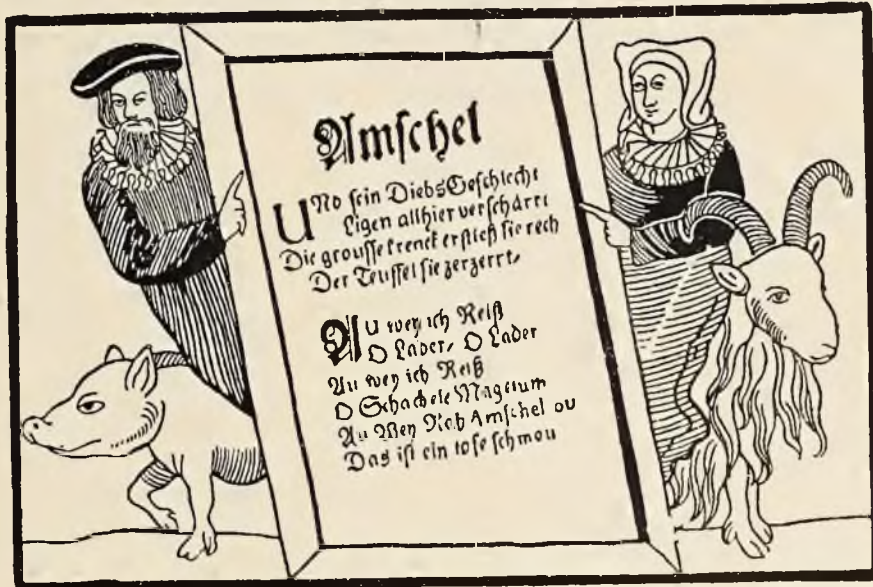 Amschel
Und sein DiebsGeschlecht
Ligen allhier verschärrt
Die grousse krenck erstlich sie rech
Der Teuffel sie zerzerrt,
Au wey ich Reiß
O Lader, O Lader
Au wey ich Reiß
O Schachele Magerum
Au Wey Rab Amschel ou
Das ist ein tofe schmou